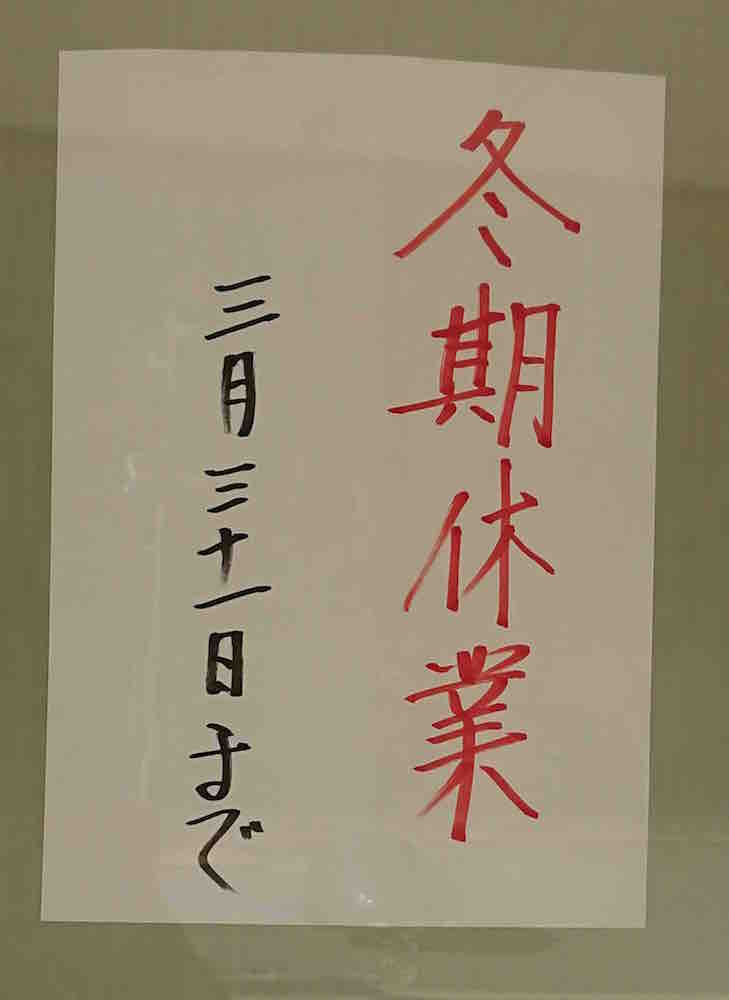 冬期休業
三月三十一日まで